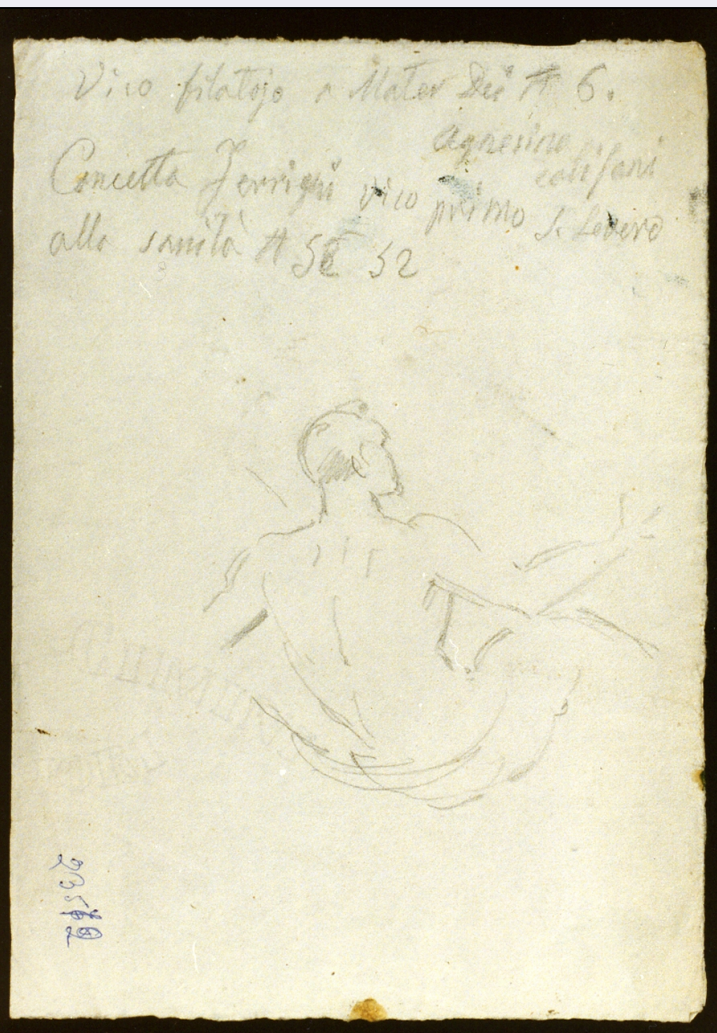 Vico filatojo a Mater Dei # 6.
Agnesina
califani
Concetta Ferrigni vico primo S. Severo
alla sanità # 52 52
23572